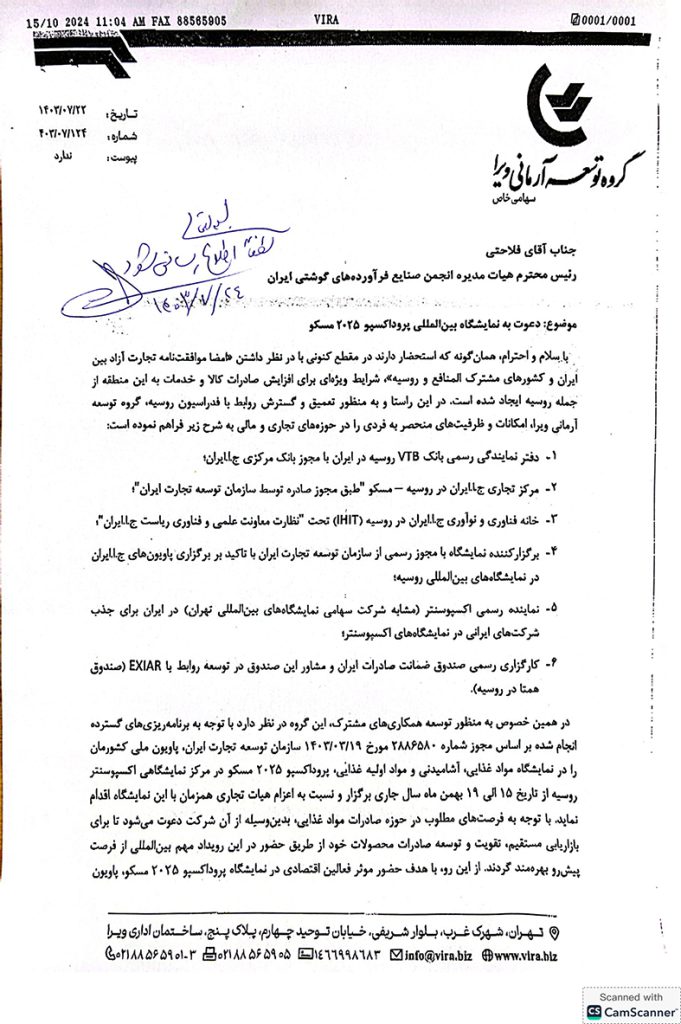 15/10 2024 11:04 AM FAX 88565905 VIRA 0001/0001
گروه توسعه آرمانی ویرا
سهامی خاص
تاریخ: ۱۴۰۳/۰۷/۲۲
شماره: ۴۰۳/۰۷/۱۲۴
پیوست: ندارد
لطفاً اطلاع رسانی شود
۱۴۰۳/۷/۲۴
جناب آقای فلاحتی
رئیس محترم هیات مدیره انجمن صنایع فرآورده‌های گوشتی ایران
موضوع: دعوت به نمایشگاه بین‌المللی پروداکسپو ۲۰۲۵ مسکو
با سلام و احترام، همان‌گونه که استحضار دارند در مقطع کنونی با در نظر داشتن «امضا موافقت‌نامه تجارت آزاد بین
ایران و کشورهای مشترک المنافع و روسیه»، شرایط ویژه‌ای برای افزایش صادرات کالا و خدمات به این منطقه از
جمله روسیه ایجاد شده است. در این راستا و به منظور تعمیق و گسترش روابط با فدراسیون روسیه، گروه توسعه
آرمانی ویرا، امکانات و ظرفیت‌های منحصر به فردی را در حوزه‌های تجاری و مالی به شرح زیر فراهم نموده است:
۱- دفتر نمایندگی رسمی بانک VTB روسیه در ایران با مجوز بانک مرکزی ج.ا.ایران؛
۲- مرکز تجاری ج.ا.ایران در روسیه – مسکو "طبق مجوز صادره توسط سازمان توسعه تجارت ایران"؛
۳- خانه فناوری و نوآوری ج.ا.ایران در روسیه (IHIT) تحت "نظارت معاونت علمی و فناوری ریاست ج.ا.ایران"؛
۴- برگزارکننده نمایشگاه با مجوز رسمی از سازمان توسعه تجارت ایران با تاکید بر برگزاری پاویون‌های ج.ا.ایران
در نمایشگاه‌های بین‌المللی روسیه؛
۵- نماینده رسمی اکسپوسنتر (مشابه شرکت سهامی نمایشگاه‌های بین‌المللی تهران) در ایران برای جذب
شرکت‌های ایرانی در نمایشگاه‌های اکسپوسنتر؛
۶- کارگزاری رسمی صندوق ضمانت صادرات ایران و مشاور این صندوق در توسعه روابط با EXIAR (صندوق
همتا در روسیه).
در همین خصوص به منظور توسعه همکاری‌های مشترک، این گروه در نظر دارد با توجه به برنامه‌ریزی‌های گسترده
انجام شده بر اساس مجوز شماره ۲۸۸۶۵۸۰ مورخ ۱۴۰۳/۰۳/۱۹ سازمان توسعه تجارت ایران، پاویون ملی کشورمان
را در نمایشگاه مواد غذایی، آشامیدنی و مواد اولیه غذایی، پروداکسپو ۲۰۲۵ مسکو در مرکز نمایشگاهی اکسپوسنتر
روسیه از تاریخ ۱۵ الی ۱۹ بهمن ماه سال جاری برگزار و نسبت به اعزام هیات تجاری همزمان با این نمایشگاه اقدام
نماید. با توجه به فرصت‌های مطلوب در حوزه صادرات مواد غذایی، بدین‌وسیله از آن شرکت دعوت می‌شود تا برای
بازاریابی مستقیم، تقویت و توسعه صادرات محصولات خود از طریق حضور در این رویداد مهم بین‌المللی از فرصت
پیش‌رو بهره‌مند گردند. از این رو، با هدف حضور موثر فعالین اقتصادی در نمایشگاه پروداکسپو ۲۰۲۵ مسکو، پاویون
تهران، شهرک غرب، بلوار شریفی، خیابان توحید چهارم، پلاک پنج، ساختمان اداری ویرا
۰۲۱۸۸۵۶۵۹۰۱-۳ ۰۲۱۸۸۵۶۵۹۰۵ ۱۴۶۶۹۹۸۶۸۳ info@vira.biz www.vira.biz
Scanned with
CS CamScanner